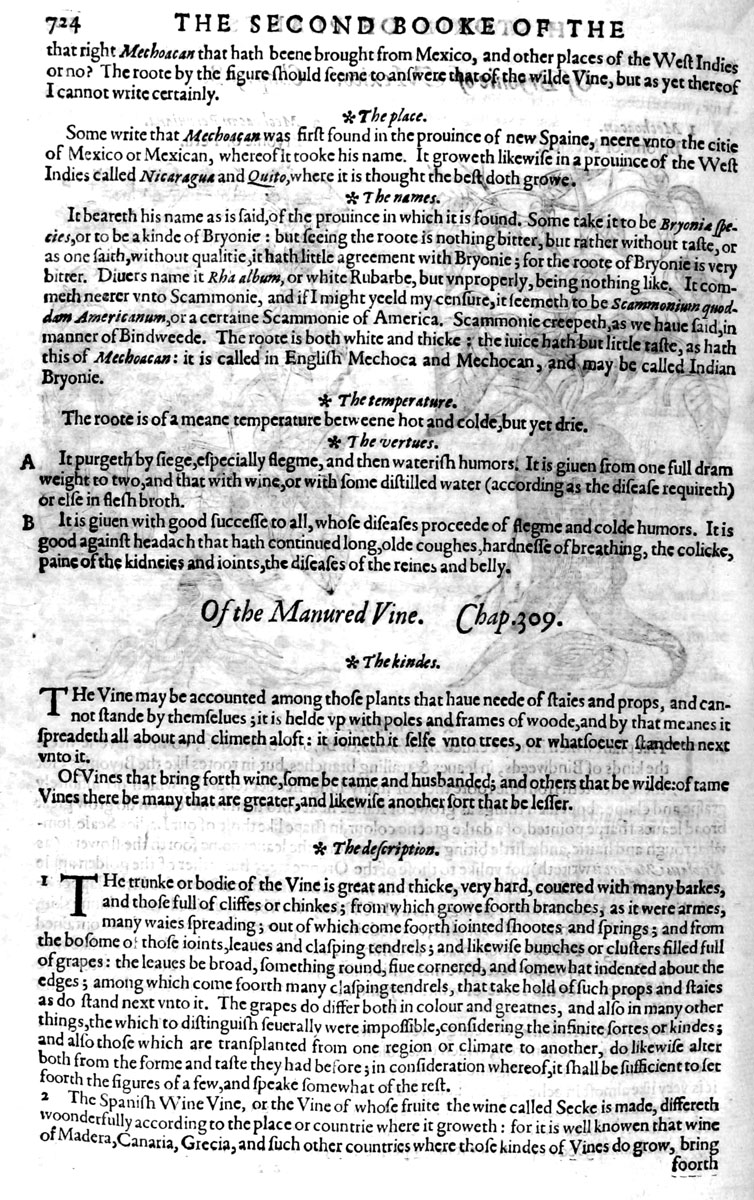 724 THE SECOND BOOKE OF THE
that right Mechoacan that hath beene brought from Mexico, and other places of the Weſt Indies
or no? The roote by the figure ſhould ſeeme to anſwere that of the wilde Vine, but as yet thereof
I cannot write certainly.
✻ The place.
Some write that Mechoacan was firſt found in the prouince of new Spaine, neere vnto the citie
of Mexico or Mexican, whereof it tooke his name. It groweth likewiſe in a prouince of the Weſt
Indies called Nicaragua and Quito, where it is thought the beſt doth growe.
✻ The names.
It beareth his name as is ſaid, of the prouince in which it is found. Some take it to be Bryoniæ ſpe-
cies, or to be a kinde of Bryonie: but ſeeing the roote is nothing bitter, but rather without taſte, or
as one ſaith, without qualitie, it hath little agreement with Bryonie; for the roote of Bryonie is very
bitter. Diuers name it Rha album, or white Rubarbe, but vnproperly, being nothing like. It com-
meth neerer vnto Scammonie, and if I might yeeld my cenſure, it ſeemeth to be Scammonium quod-
dam Americanum, or a certaine Scammonie of America. Scammonie creepeth, as we haue ſaid, in
manner of Bindweede. The roote is both white and thicke: the iuice hath but little taſte, as hath
this of Mechoacan: it is called in Engliſh Mechoca and Mechocan, and may be called Indian
Bryonie.
✻ The temperature.
The roote is of a meane temperature betweene hot and colde, but yet drie.
✻ The vertues.
A It purgeth by ſiege, eſpecially flegme, and then wateriſh humors. It is giuen from one full dram
weight to two, and that with wine, or with ſome diſtilled water (according as the diſeaſe requireth)
or elſe in fleſh broth.
B It is giuen with good ſucceſſe to all, whoſe diſeaſes proceede of flegme and colde humors. It is
good againſt headach that hath continued long, olde coughes, hardneſſe of breathing, the colicke,
paine of the kidneies and ioints, the diſeaſes of the reines and belly.
Of the Manured Vine. Chap. 309.
✻ The kindes.
THe Vine may be accounted among thoſe plants that haue neede of ſtaies and props, and can-
not ſtande by themſelues; it is helde vp with poles and frames of woode, and by that meanes it
ſpreadeth all about and climeth aloft: it ioineth it ſelfe vnto trees, or whatſoeuer ſtandeth next
vnto it.
Of Vines that bring forth wine, ſome be tame and husbanded; and others that be wilde: of tame
Vines there be many that are greater, and likewiſe another ſort that be leſſer.
✻ The deſcription.
1 THe trunke or bodie of the Vine is great and thicke, very hard, couered with many barkes,
and thoſe full of cliffes or chinkes; from which growe foorth branches, as it were armes,
many waies ſpreading; out of which come foorth iointed ſhootes and ſprings; and from
the boſome of thoſe ioints, leaues and claſping tendrels; and likewiſe bunches or cluſters filled full
of grapes: the leaues be broad, ſomething round, fiue cornered, and ſomewhat indented about the
edges; among which come foorth many claſping tendrels, that take hold of ſuch props and ſtaies
as do ſtand next vnto it. The grapes do differ both in colour and greatnes, and alſo in many other
things, the which to diſtinguiſh ſeuerally were impoſſible, conſidering the infinite ſortes or kindes;
and alſo thoſe which are tranſplanted from one region or climate to another, do likewiſe alter
both from the forme and taſte they had before; in conſideration whereof, it ſhall be ſufficient to ſet
foorth the figures of a few, and ſpeake ſomewhat of the reſt.
2 The Spaniſh Wine Vine, or the Vine of whoſe fruite the wine called Secke is made, differeth
woonderfully according to the place or countrie where it groweth: for it is well knowen that wine
of Madera, Canaria, Grecia, and ſuch other countries where thoſe kindes of Vines do grow, bring
foorth